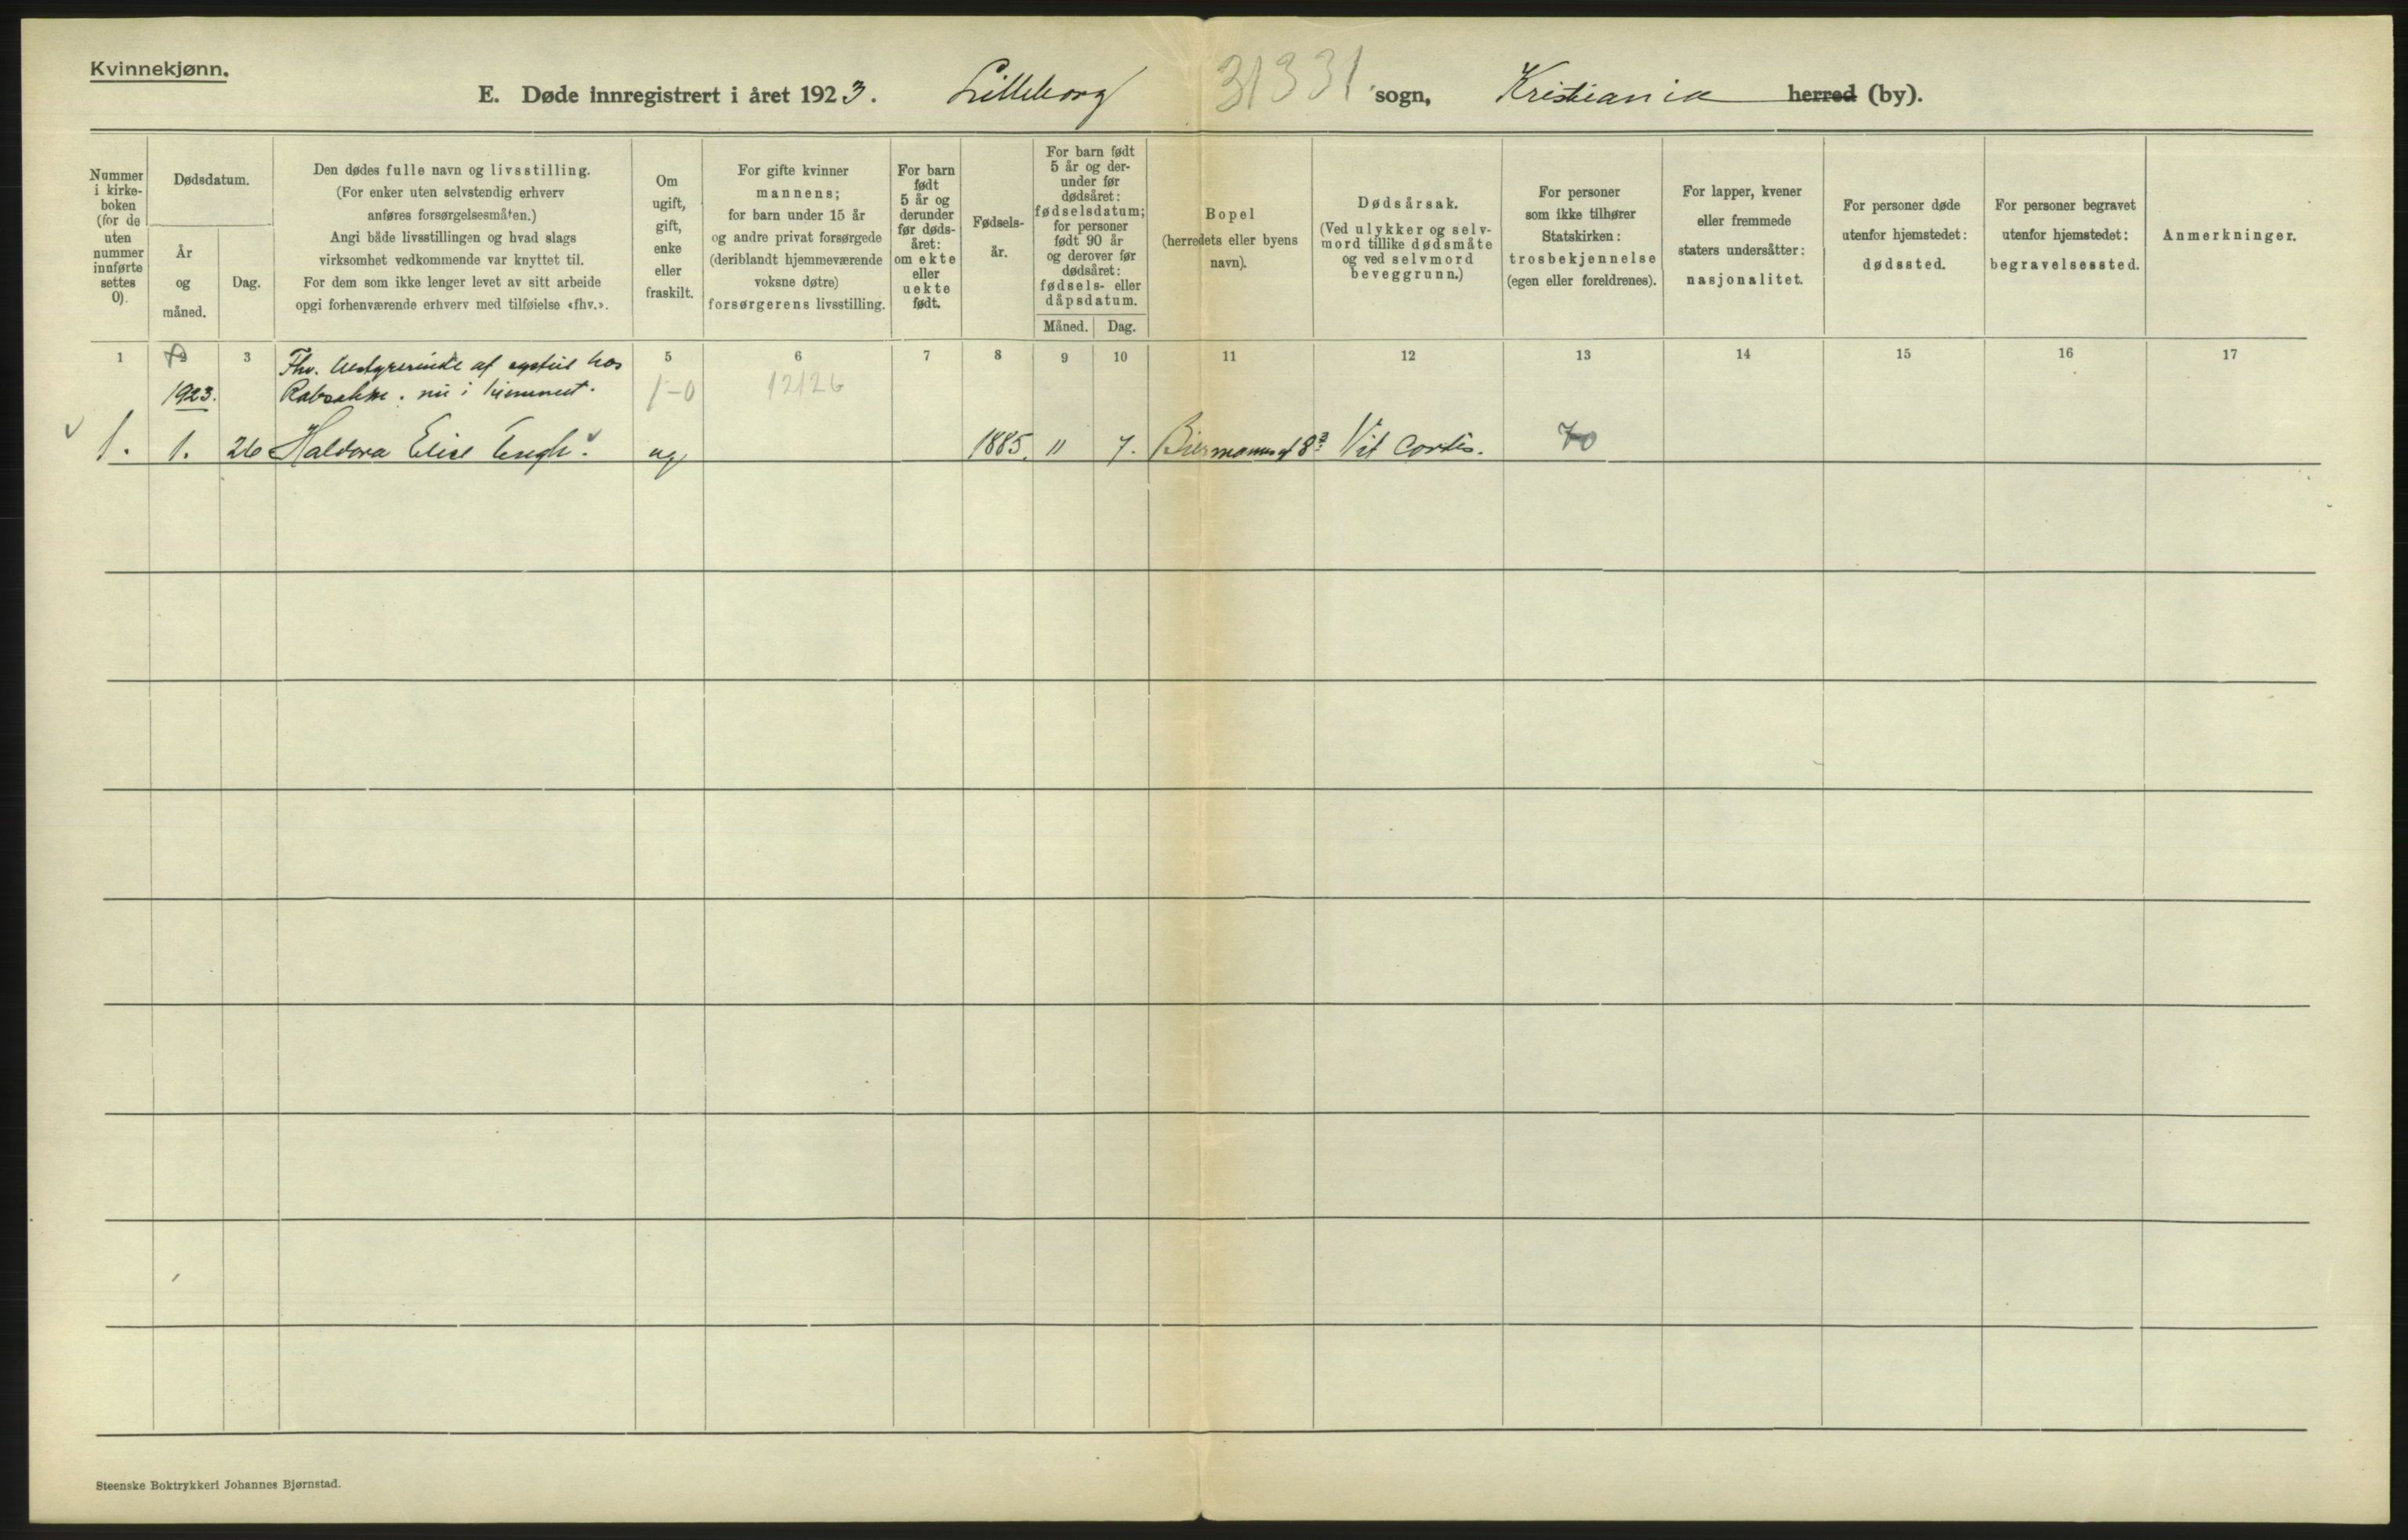 Kvinnekjønn.
E. Døde innregistrert i året 1923. Lilleborg 31331 sogn, Kristiania herred (by).
Nummer i kirke-boken (for de uten nummer innførte settes 0).
Dødsdatum.
År og måned.
Dag.
Den dødes fulle navn og livsstilling.
(For enker uten selvstendig erhverv
anføres forsørgelsesmåten.)
Angi både livsstillingen og hvad slags
virksomhet vedkommende var knyttet til.
For dem som ikke lenger levet av sitt arbeide
opgi forhenværende erhverv med tilføielse «fhv.».
Om
ugift,
gift,
enke
eller
fraskilt.
For gifte kvinner
mannens;
for barn under 15 år
og andre privat forsørgede
(deriblandt hjemmeværende
voksne døtre)
forsørgerens livsstilling.
For barn
født
5 år og
derunder
før døds-
året:
om ekte
eller
uekte
født.
Fødsels-
år.
For barn født
5 år og der-
under før
dødsåret:
fødselsdatum;
for personer
født 90 år
og derover før
dødsåret:
fødsels- eller
dåpsdatum.
Måned. Dag.
Bopel
(herredets eller byens
navn).
Dødsårsak.
(Ved ulykker og selv-
mord tillike dødsmåte
og ved selvmord
beveggrunn.)
For personer
som ikke tilhører
Statskirken:
trosbekjennelse
(egen eller foreldrenes).
For lapper, kvener
eller fremmede
staters undersåtter:
nasjonalitet.
For personer døde
utenfor hjemstedet:
dødssted.
For personer begravet
utenfor hjemstedet:
begravelsessted.
Anmerkninger.
1 3 5 6 7 8 9 10 11 12 13 14 15 16 17
Fhv. bestyrerinde af hos
1923. nu i hjemmet. 1-0 12126
1. 1. 26 Haldora Elise Engh. ug 1885. 11 7. Biermannsg 8³ Vit Cordis. 70
Steenske Boktrykkeri Johannes Bjørnstad.